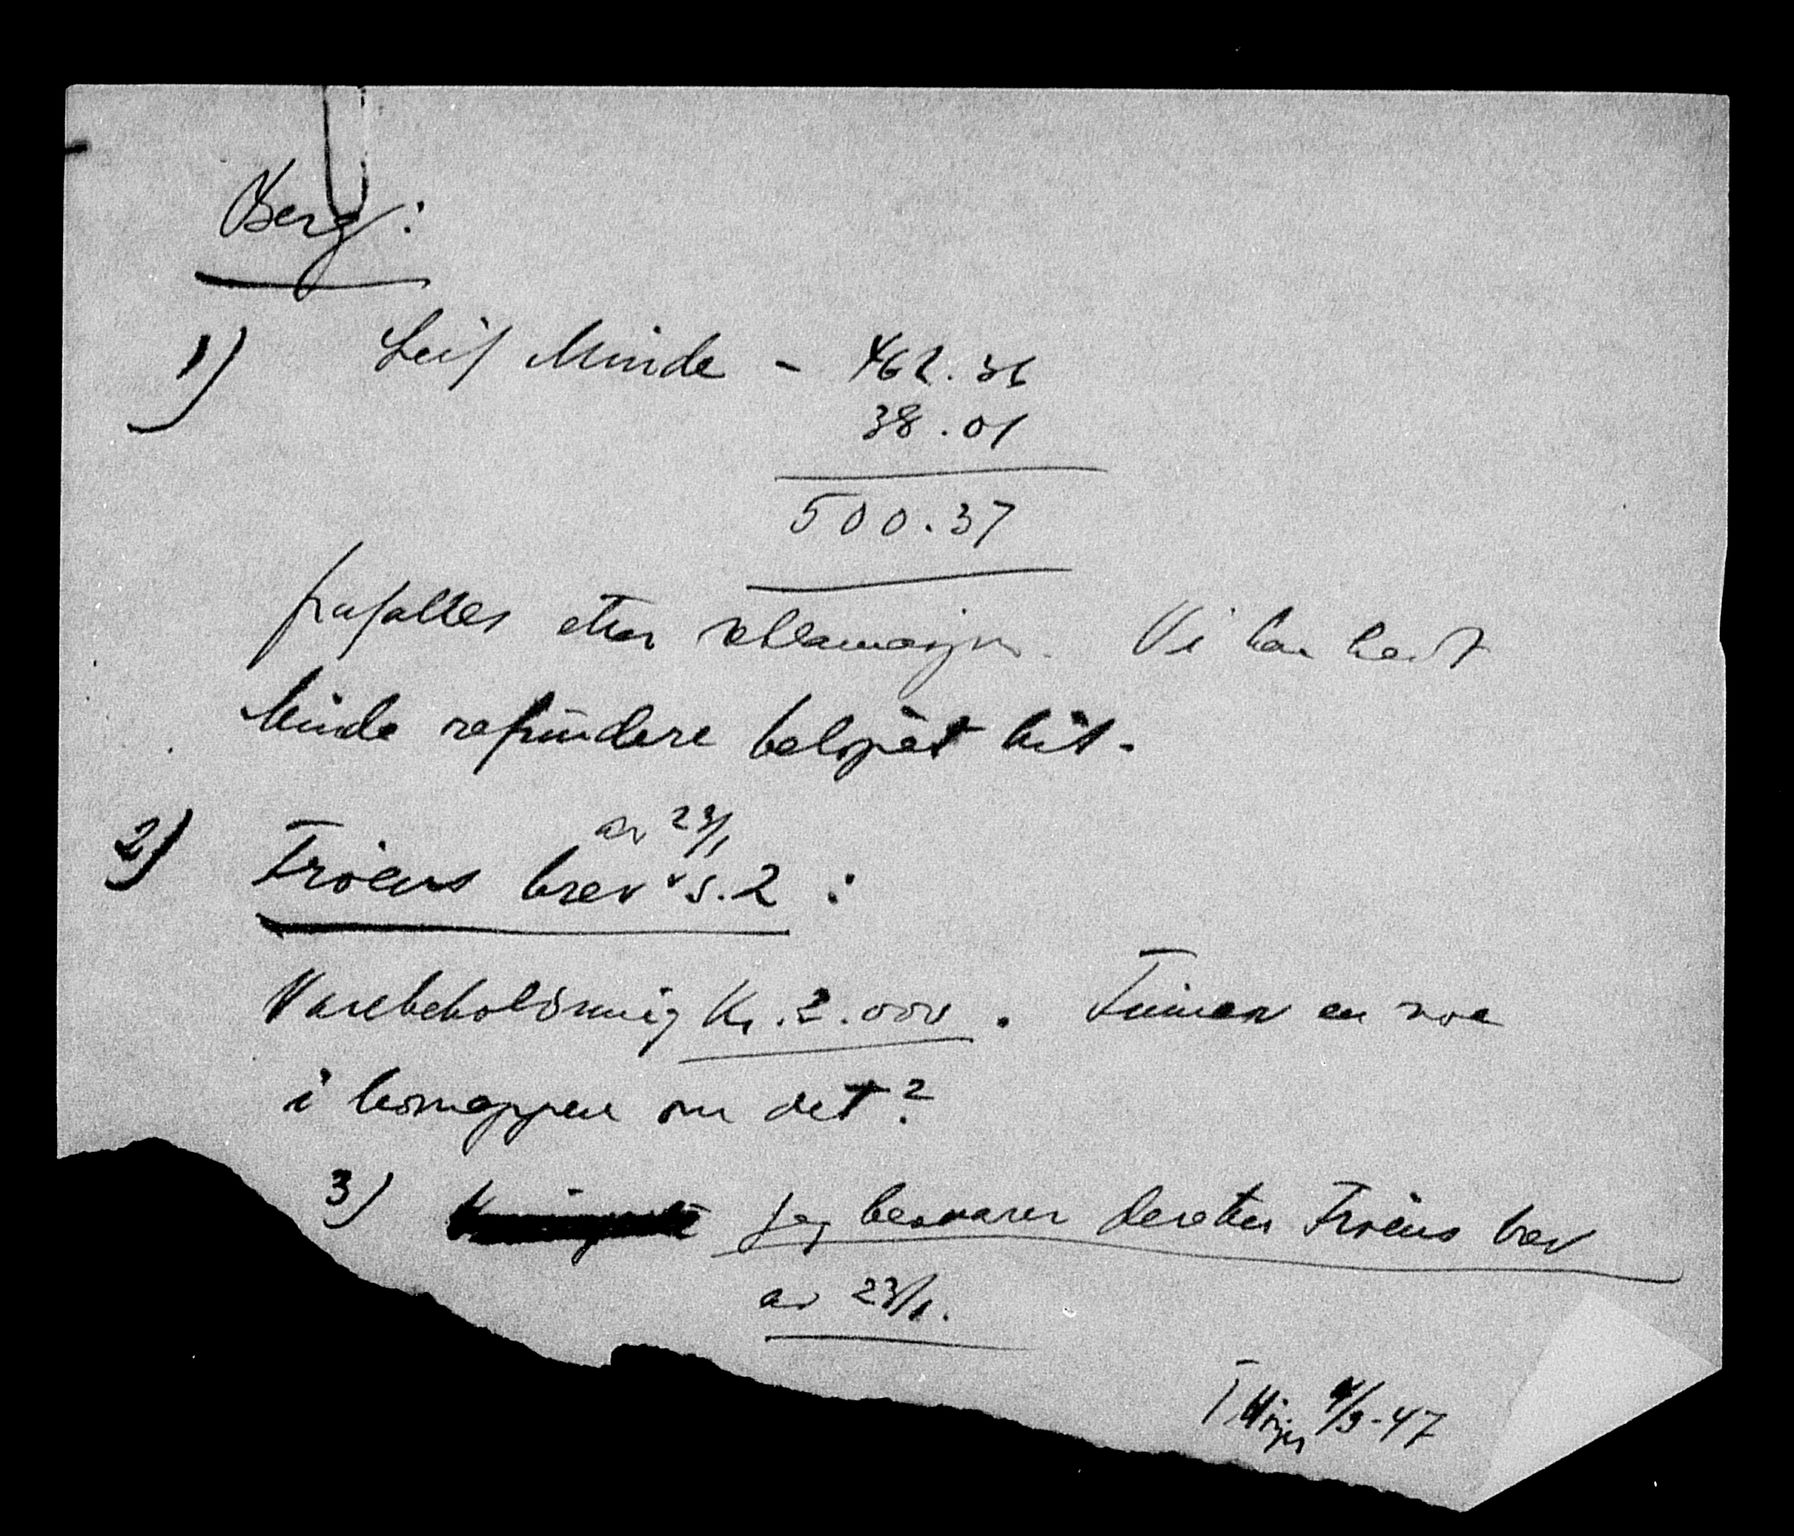 Berg:
1) Leif Minde - 462.36
38.01
500.37
frafalles etter reklamasjon. Vi har hatt
Minde refundere beløpet hit.
av 23/1
2) Frøens brev s.2 :
Varebeholdning Kr. 2.000. Finner en noe
i bomappen om det?
3) Jeg besvarer deretter Frøens brev
av 23/1.
4/3-47